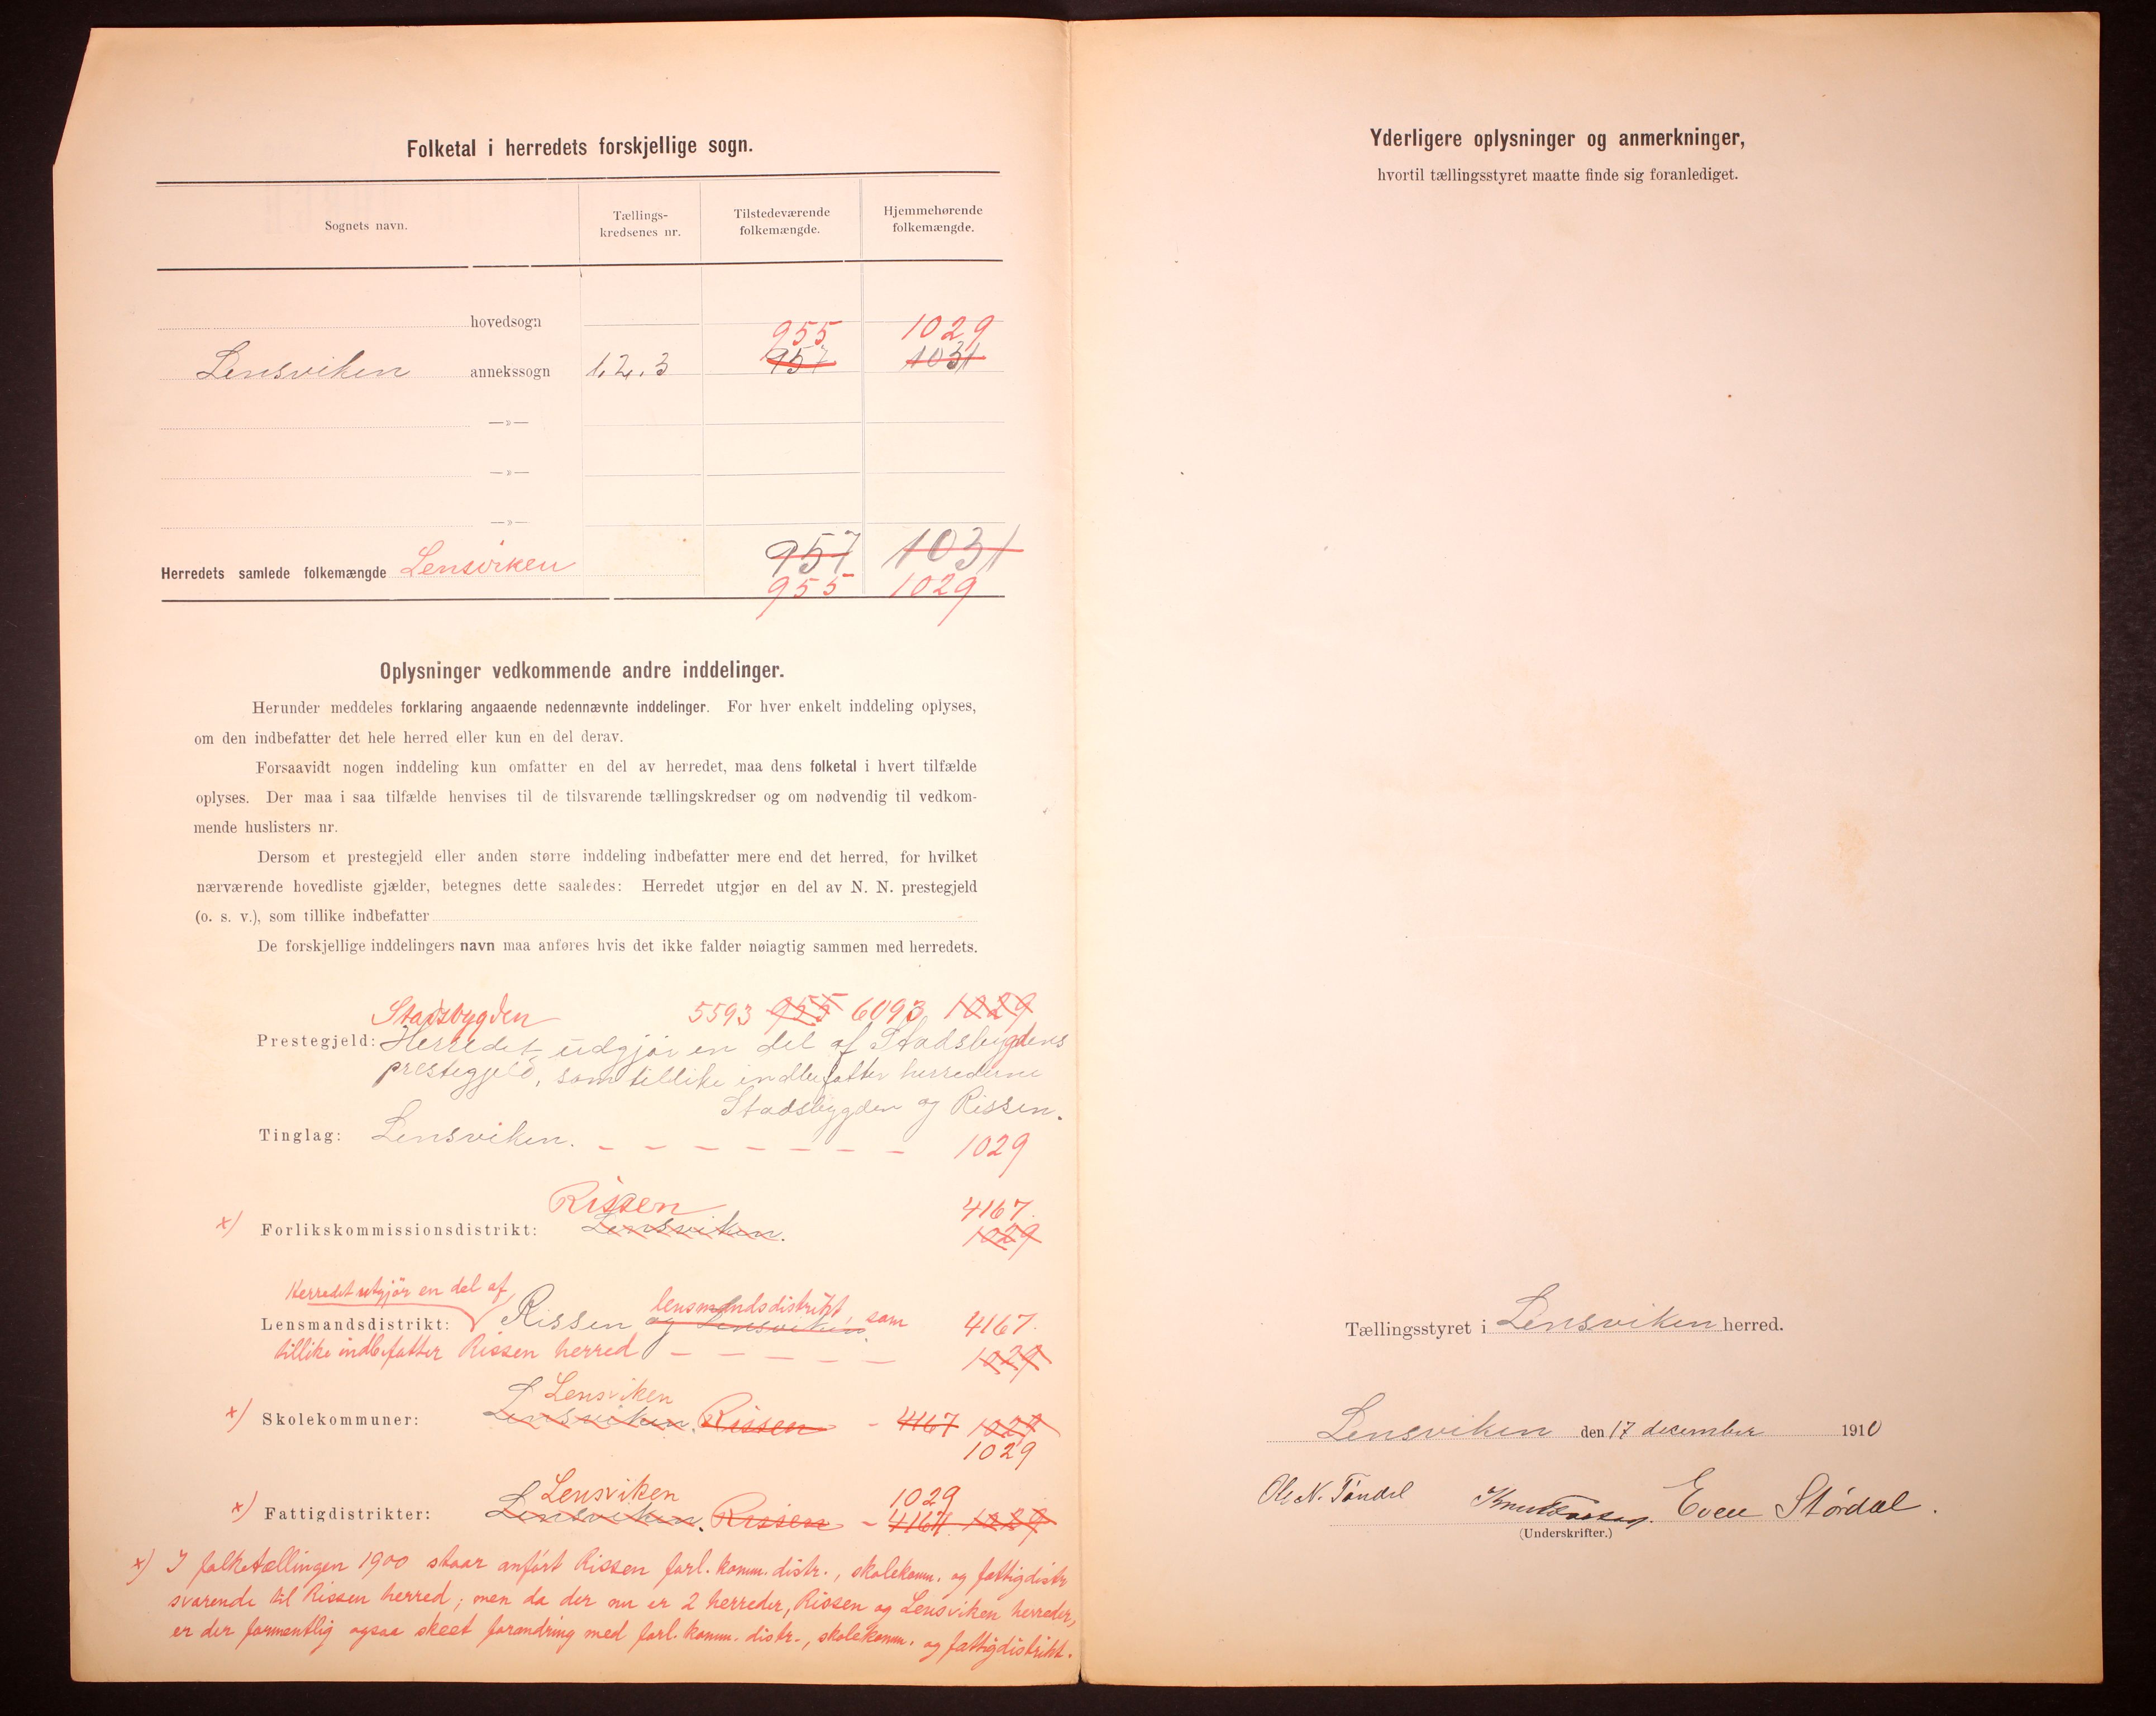 Folketal i herredets forskjellige sogn.
Sognets navn.
Tællings-
kredsenes nr.
Tilstedeværende
folkemængde.
Hjemmehørende
folkemængde.
hovedsogn
955 1029
Lensviken annekssogn 1. 2. 3 957 1031
—»—
—»—
—»—
957 1031
Herredets samlede folkemængde Lensviken
955 1029
Oplysninger vedkommende andre inddelinger.
Herunder meddeles forklaring angaaende nedennævnte inddelinger. For hver enkelt inddeling oplyses,
om den indbefatter det hele herred eller kun en del derav.
Forsaavidt nogen inddeling kun omfatter en del av herredet, maa dens folketal i hvert tilfælde
oplyses. Der maa i saa tilfælde henvises til de tilsvarende tællingskredser og om nødvendig til vedkom-
mende huslisters nr.
Dersom et prestegjeld eller anden større inddeling indbefatter mere end det herred, for hvilket
nærværende hovedliste gjælder, betegnes dette saaledes: Herredet utgjør en del av N. N. prestegjeld
(o. s. v.), som tillike indbefatter
De forskjellige inddelingers navn maa anføres hvis det ikke falder nøiagtig sammen med herredets.
Stadsbygden 5593 955 6093 1029
Prestegjeld: Herredet udgjør en del af Stadsbygdens
prestegjeld, som tillike indbefatter herrederne
Stadsbygden og Rissen.
Tinglag: Lensviken. — — — — — — — 1029
Rissen 4167.
x) Forlikskommissionsdistrikt: Lensviken. 1029
Herredet utgjør en del af
lensmandsdistrikt, som
Lensmandsdistrikt: Rissen og Lensviken. 4167.
tillike indbefatter Rissen herred — — — — — 1029
Lensviken
x) Skolekommuner: Lensviken. Rissen - 4167 1029
1029
Lensviken 1029
x) Fattigdistrikter: Lensviken. Rissen - 4167 1029
x) I folketællingen 1900 staar anført Rissen forl. komm. distr., skolekomm. og fattigdistr
svarende til Rissen herred; men da der nu er 2 herreder, Rissen og Lensviken herreder,
er der formentlig ogsaa skeet forandring med forl. komm. distr., skolekomm. og fattigdistrikt.
Yderligere oplysninger og anmerkninger,
hvortil tællingsstyret maatte finde sig foranlediget.
Tællingsstyret i Lensviken herred.
Lensviken den 17 december 1910
Ole N. Tøndel Even Størdal.
(Underskrifter.)